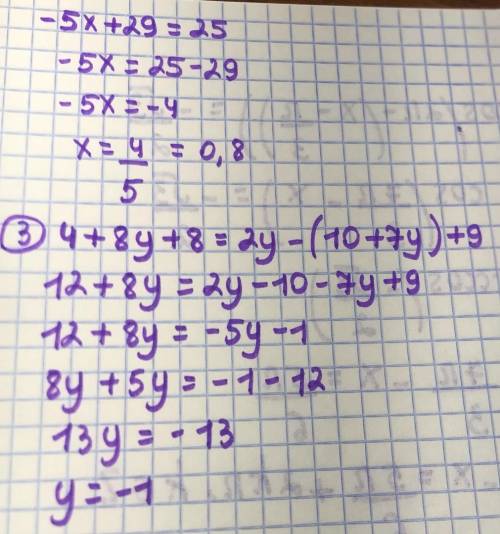 -5x+29=25
-5x=25-29
-5x=-4
x=4/5=0,8
③ 4+8y+8=2y-(10+7y)+9
12+8y=2y-10-7y+9
12+8y=-5y-1
8y+5y=-1-12
13y=-13
y=-1